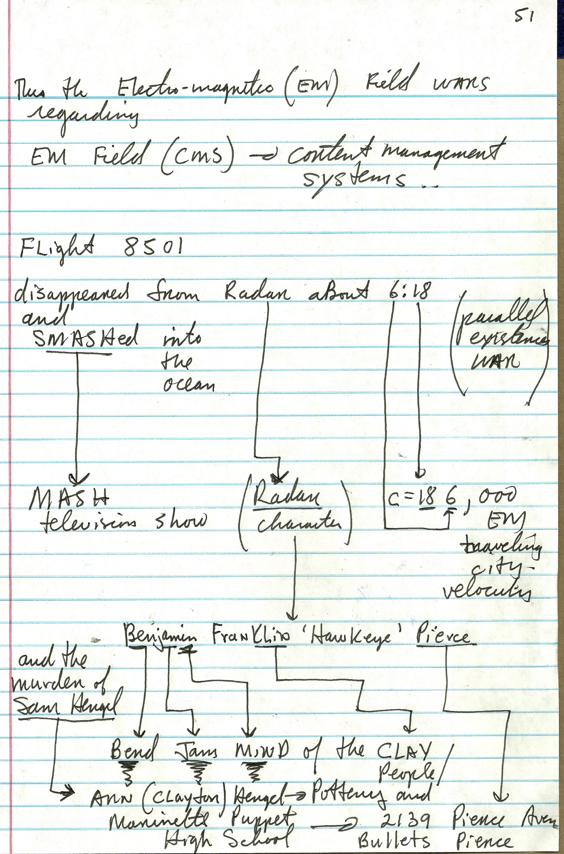 51
Thus the Electro-magnetic (EM) Field WARS
regarding
EM Field (CMS) → content management
systems..
FLight 8501
disappeared from Radar about 6:18
and
SMASHed into
the
ocean
(parallel
existence
WAR)
MASH
television show
(Radar
character)
c=186,000
EM
traveling
city-
velocity
Benjamin FranKlin 'HawKeye' Pierce
and the
murder of
Sam Hengel
Bend Jams MIND of the CLAY
People/
ANN (Clayton) Hengel → Pottery and
Marinette Puppet → 2139 Pierce Aven
High School Bullets Pierce